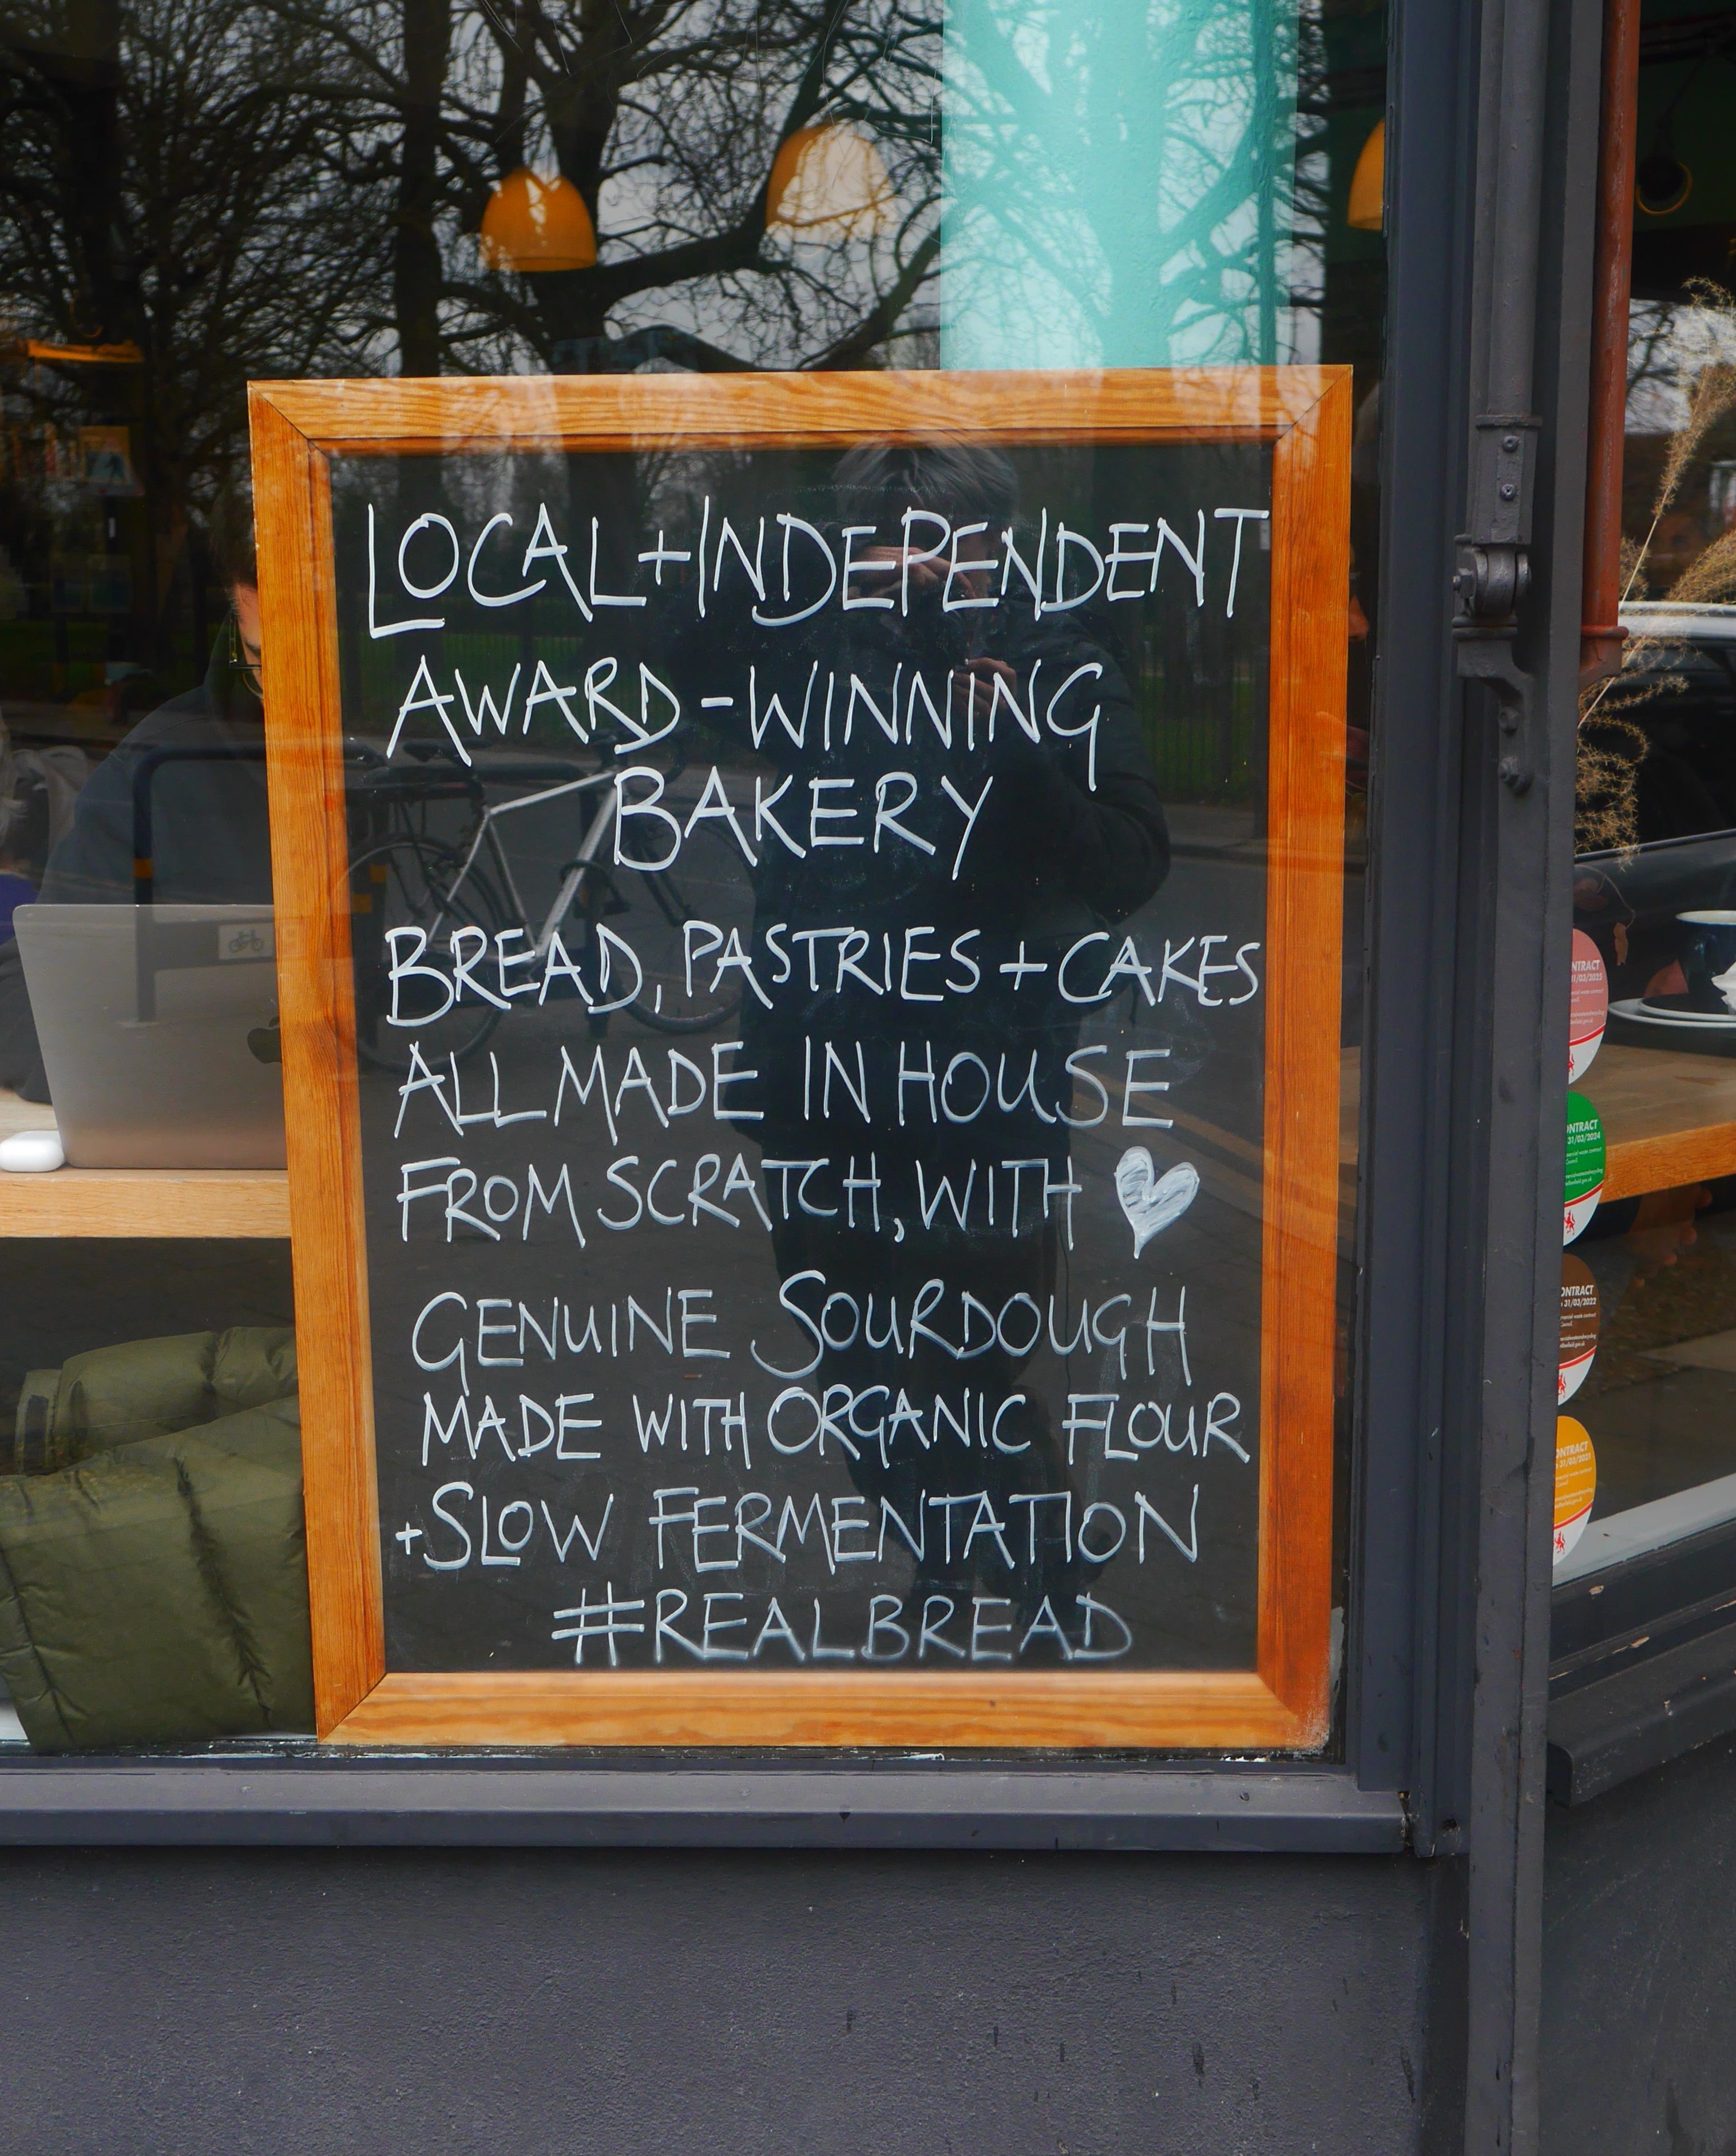 LOCAL + INDEPENDENT
AWARD-WINNING
BAKERY
BREAD, PASTRIES + CAKES
ALL MADE IN HOUSE
FROM SCRATCH, WITH ♥
GENUINE SOURDOUGH
MADE WITH ORGANIC FLOUR
+ SLOW FERMENTATION
#REALBREAD
NTRACT
31/03/2023
ONTRACT
31/03/2024
ONTRACT
31/03/2022
ONTRACT
31/03/2021